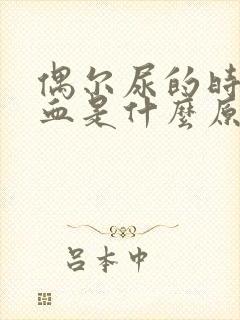 偶尔尿的时
血是什麼原
吕本中